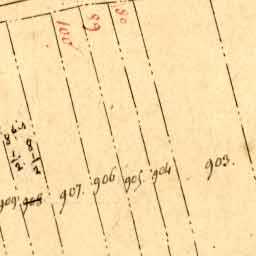 100
89
80
8 bis
1/2
8
1/2
909. 908 907. 906 905. 904 903.